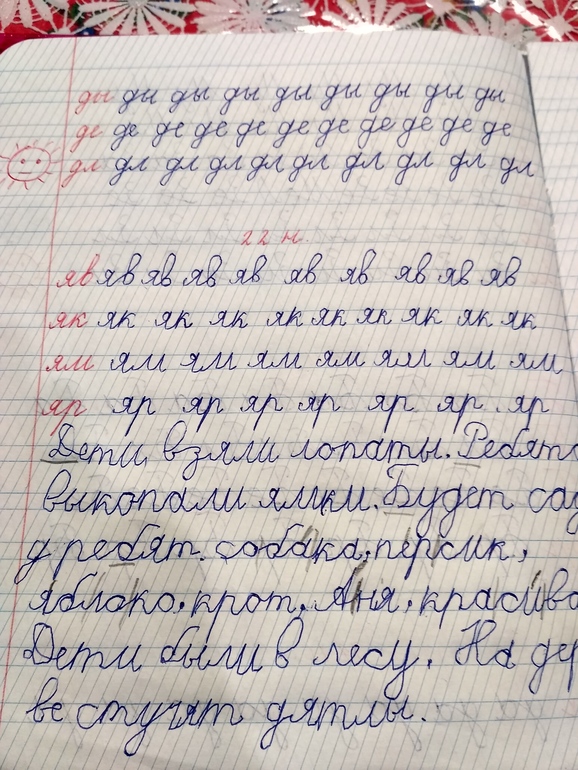 ды ды ды ды ды ды ды ды ды
де де де де де де де де де де де
дл дл дл дл дл дл дл дл дл дл
22 н.
яв яв яв яв яв яв яв яв яв яв
як як як як як як як як як як
ям ям ям ям ям ям ям ям
яр яр яр яр яр яр яр яр
Дети взяли лопаты. Ребят
выкопали ямки. Будет са
у ребят. собака, персик,
яблоко, крот, Аня, красив
Дети были в лесу. На дер
ве стучат дятлы.